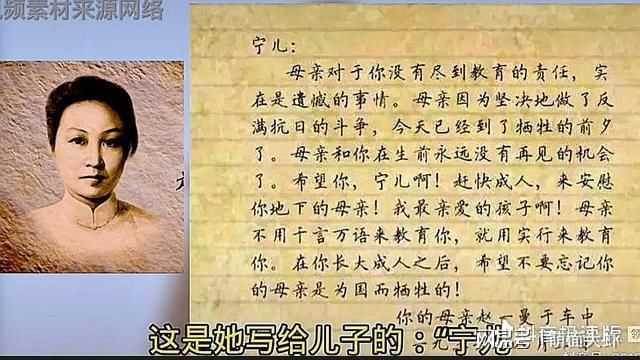 频素材来源网络
宁儿:
母亲对于你没有尽到教育的责任，实
在是遗憾的事情。母亲因为坚决地做了反
满抗日的斗争，今天已经到了牺牲的前夕
了。母亲和你在生前永远没有再见的机会
了。希望你，宁儿啊！赶快成人，来安慰
你地下的母亲！我最亲爱的孩子啊！母亲
不用千言万语来教育你，就用实行来教育
你。在你长大成人之后，希望不要忘记你
的母亲是为国而牺牲的！
你的母亲赵一曼于车中
这是她写给儿子的：“宁儿